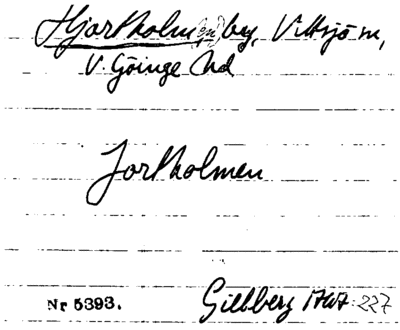 Hjortholm(en) beg, Vittsjö sn,
V. Göinge hd
Jortholmen
Nr 5393. Gillberg 1767 227